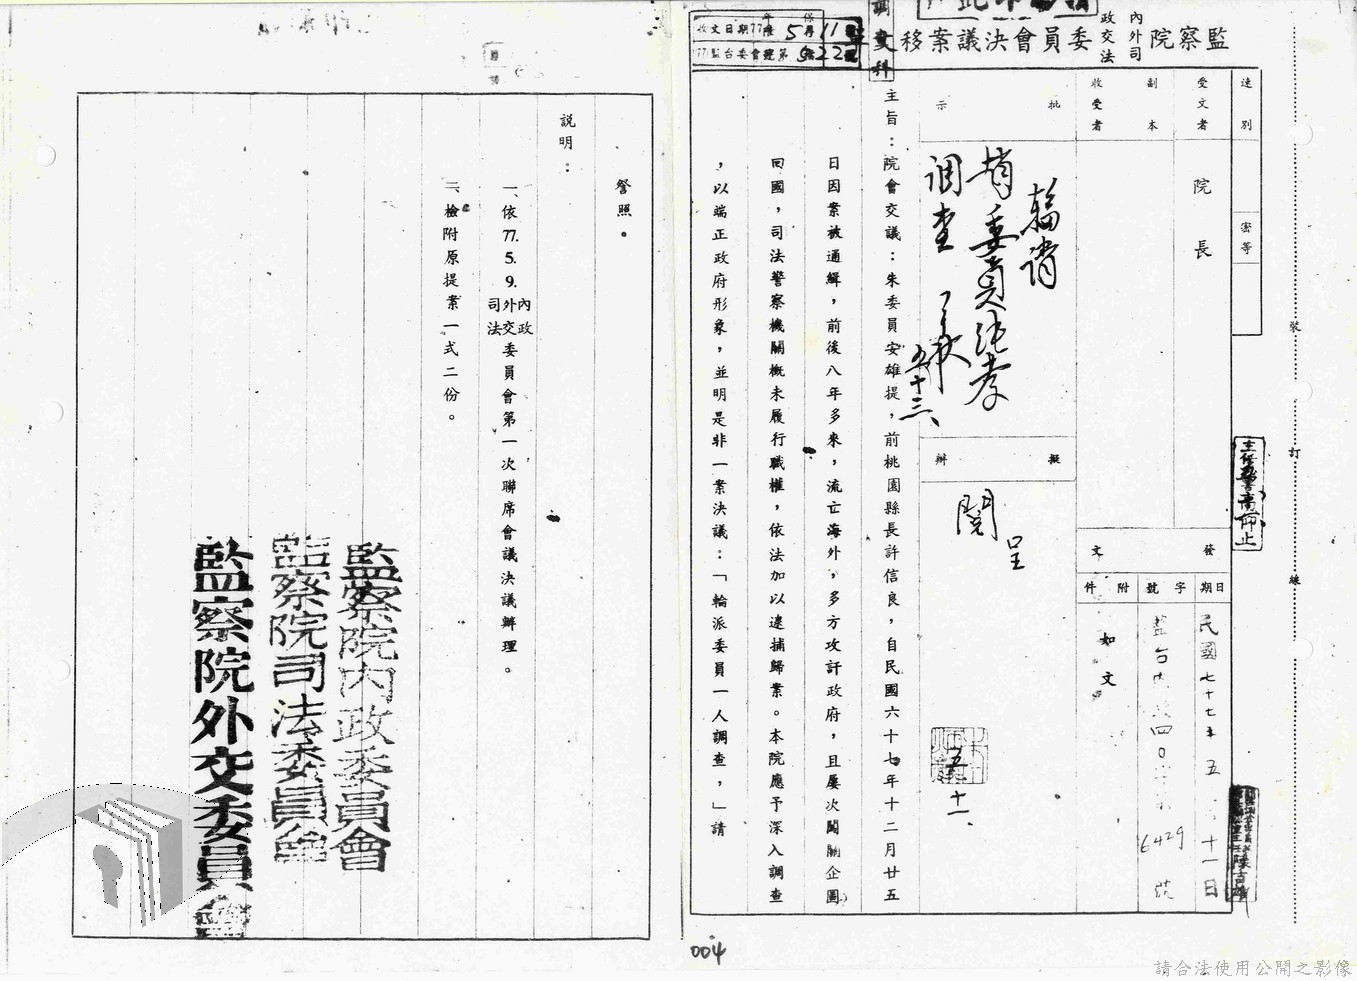 監察院 內政 外交 司法 委員會決議案移
調查科
收文日期 77年5月11
速別
密等
受文者
院長
副本
收受者
批示
輪請
趙委員純孝
調查
五十三、
擬辦
呈
閱
五
十一
發文
日期
民國七十七年五、十一日
字號
6429
附件
如文
主旨:院會交議:朱委員安雄提,前桃園縣長許信良,自民國六十七年十二月廿五
日因案被通緝,前後八年多來,流亡海外,多方攻訐政府,且屢次闖關企圖
回國,司法警察機關概未履行職權,依法加以逮捕歸案。本院應予深入調查
,以端正政府形象,並明是非一案決議:「輪派委員一人調查,」請
詧照。
說明:
一、依77.5.9.內政外交司法委員會第一次聯席會議決議辦理。
二、檢附原提案一式二份。
監察院內政委員會
監察院司法委員會
監察院外交委員會
裝
訂
線
004
請合法使用公開之影像